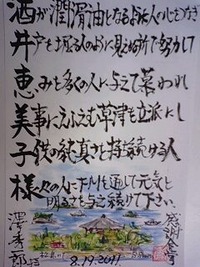 酒が潤滑油となるように人の心をつなぎ
井戸を掘る人のように見えぬ所で努力して
恵みを多くの人に与えて慕われ
美事にえふえむ草津を立派にし
子供の純真さを持ち続ける人
様々の人に下ルを通して元気と
明るさを与え続けて下さい。
感謝合掌
澤秀郎
8.19.2011